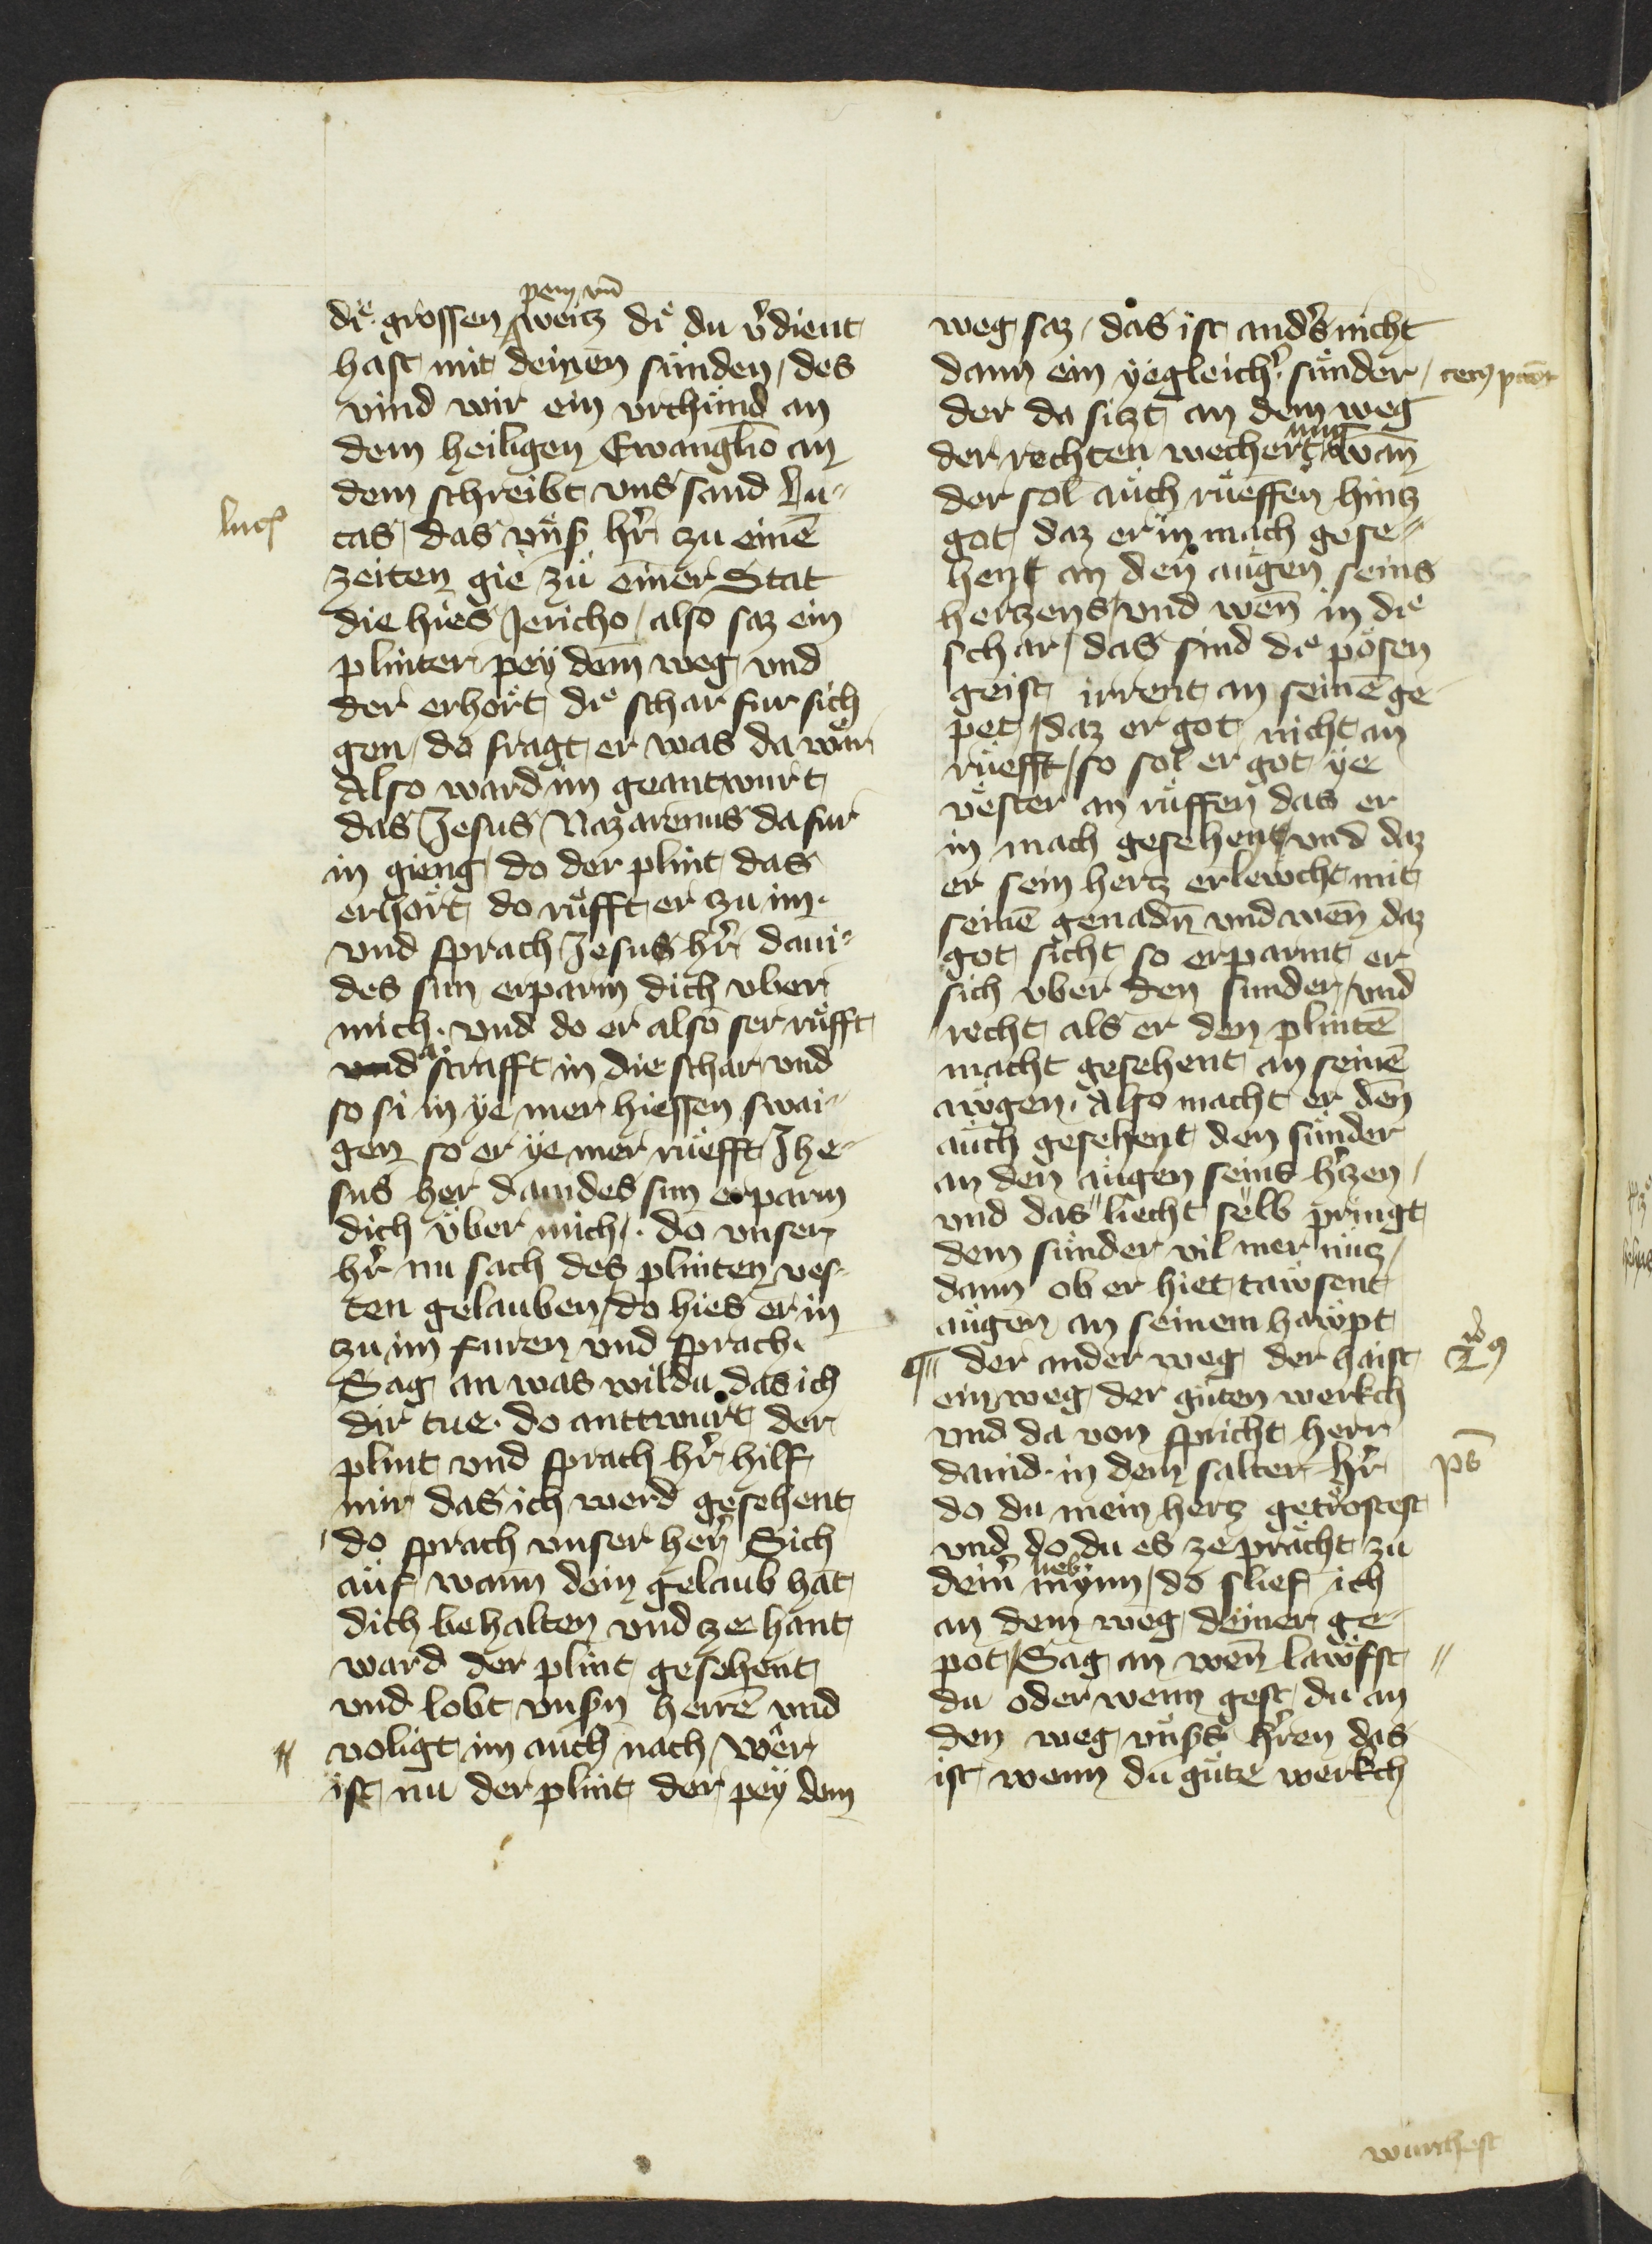 pein vn̄
die grossen weitz die du v̾dient
hast mit deinen sünden / des
vind wir ein vrchünd an
dem heiligen Ewanglio an
dem schreibt vns sand Lu-
Luc
cas / das vns̾ hr̄ zu einē
zeiten gie zü einer Stat
die hies Jericho / also saz ein
plinter pey dem weg vnd
der erhort die schar fur sich
gen / do fragt er was da wär
Also ward im geantwurt
das Jesus Nazarenus da für
in gieng / do der plint das
erhört do rüfft er zu im.
vnd sprach Jesus hr̄ daui-
des sun erparm dich vber
mich. vnd do er also ser rüfft
do strafft in die schar vnd
so si in ye mer hiessen swai-
gen so er ye mer rüefft Jhe-
sus her dauides sun erparm
dich über mich. do vnser
hr̄ nu sach des plinten ves-
ten gelauben / do hies er in
zu im furen vnd sprach.
Sag an was wildu das ich
dir tue. do anttwurt der
plint vnd sprach hr̄ hilf
mir das ich werd gesehent
do sprach vnser her Sich
auf wann dein gelaub hat
dich behalten vnd ze hant
ward der plint gesehent
vnd lobt vns̾n herrē vnd
voligt im auch nach / Wer
ist nu der plint der pey dem
weg saz / das ist and̾s nicht
dann ein yegleich̾ sünder /
der da sitzt an dem weg
nung
der rechten wechert wān
der sol auch rüeffen hintz
got daz er in mach gese-
hent an den augen seins
hertzens / vnd wen̄ in die
schar / das sind die pösen
geist irrent an seinē ge-
pet / daz er got nicht an
rüefft / so sol er got ye
vester an rüffen das er
in mach gesehent vnd daz
er sein hertz erlewcht mit
seinē genadn̄ vnd wen̄ daz
got sicht so erparmt er
sich vber den sunder / vnd
recht als er den plintē
macht gesehent an seinē
awgen. Also macht er den
auch gesehent den sünder
an den augen seins h̾tzen /
vnd das liecht selb pringt
dem sünder vil mer nutz /
dann ob er hiet tawsent
augen an seinem hawpt
der ander weg der haist
ein weg der guten werkch
vnd da von spricht herr
dauid. in dem salter hr̄
ps̄
do du mein hertz getröstest
vnd do du es ze prächt zu
lieb
dein̾ mynn / do slief ich
an dem weg deiner ge-
pot / Sag an wen̄ lawfst
du oder wenn gest du an
den weg vns̾s hr̄en das
ist wenn du güte werkch
wurchest